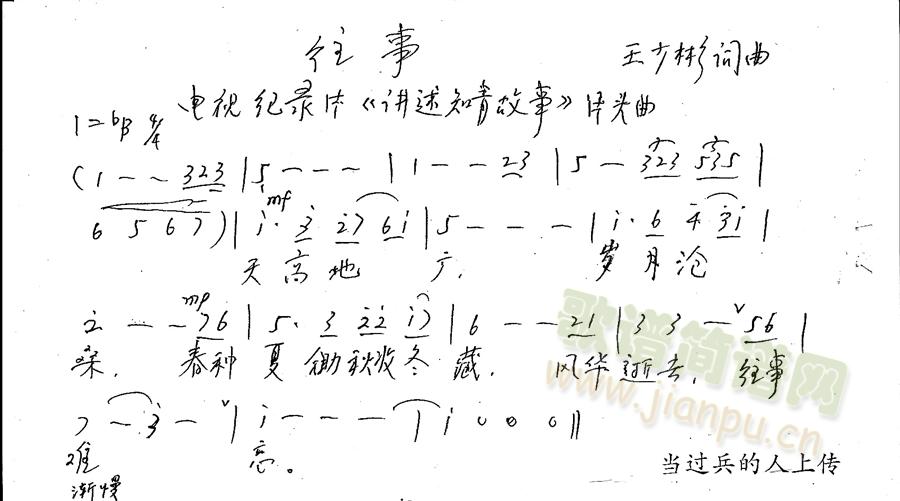 往事
王少彬词曲
电视纪录片《讲述知青故事》片头曲
1=bB 4/4
(1 - - 323 | 5 - - - | 1 - - 23 | 5 - 323 535 |
mf
6 5 6 7 ) | i· 3 27 6i | 5 - - - | i· 6 4 3i |
天高地广, 岁月沧
mp
2 - - 76 | 5· 3 22 i7 | 6 - - 21 | 3 3 - v 56 |
桑, 春种夏锄秋收冬藏, 风华逝去, 往事
7 - 3 - v | i - - - | i 0 0 0 ||
难 忘。
渐慢
当过兵的人上传
歌谱简谱网
www.jianpu.cn